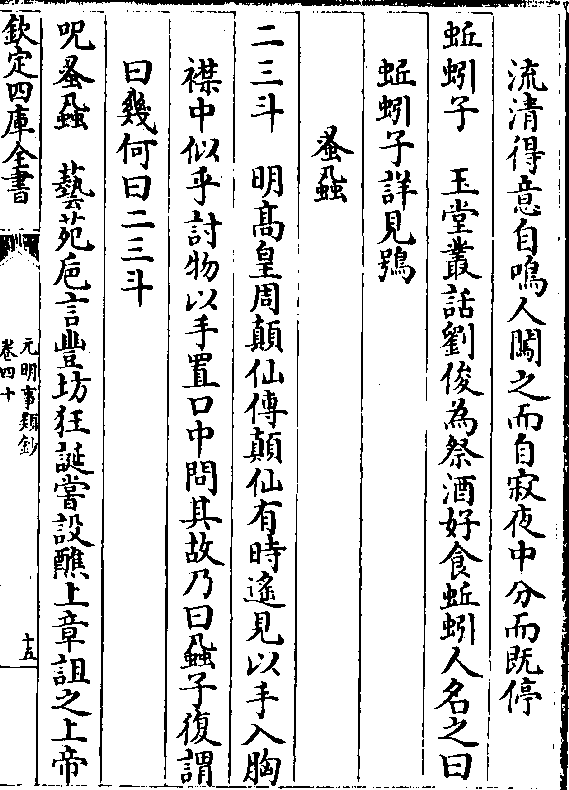 流清得意自鳴人鬨之而自寂夜中分而既停
蚯蚓子　玉堂叢話劉俊為祭酒好食蚯蚓人名之曰
蚯蚓子詳見鴞
蚤蝨
二三斗　明髙皇周顛仙傳顛仙有時遙見以手入胸
襟中似乎討物以手置口中問其故乃曰蝨子復謂
曰幾何曰二三斗
呪蚤蝨　藝苑巵言豐坊狂誕嘗設醮上章詛之上帝
欽定四庫全書
元明事類鈔
卷四十
十五